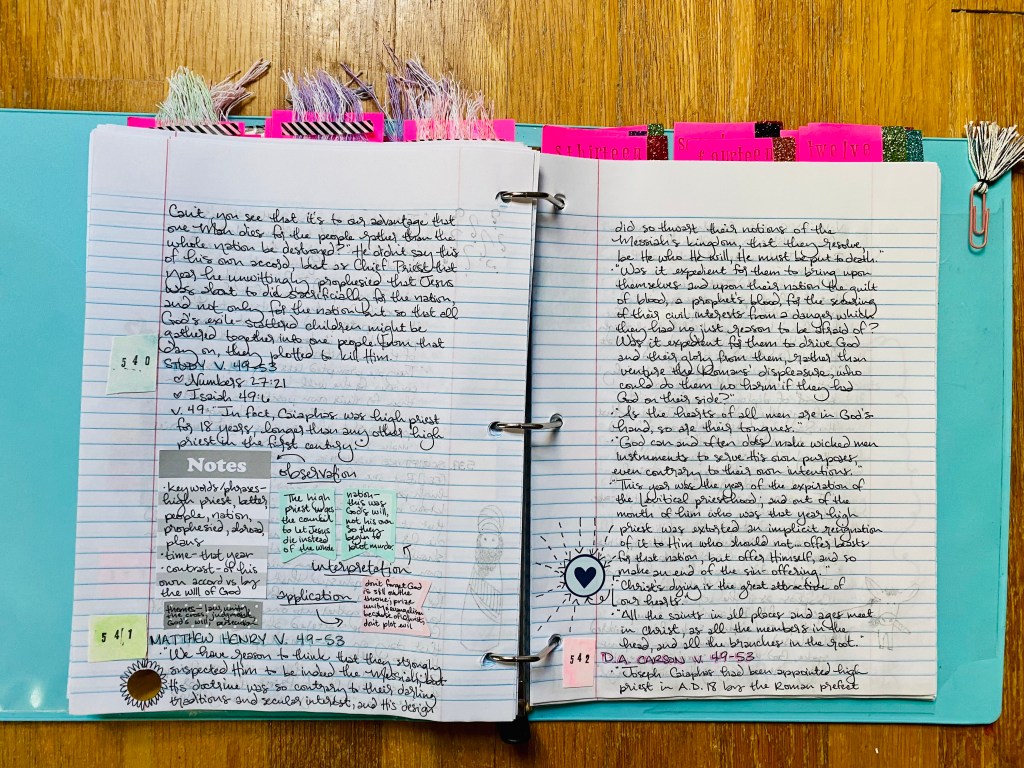 thirteen
fourteen
twelve
Can't you see that it's to our advantage that
one Man dies for the people rather than the
whole nation be destroyed?" He didn't say this
of his own accord, but as Chief Priest that
year he unwittingly prophesied that Jesus
was about to die sacrificially for the nation,
and not only for the nation but so that all
God's exile-scattered children might be
gathered together into one people. From that
day on, they plotted to kill Him.
540
STUDY V. 49-53
Numbers 27:21
Isaiah 49:6
V. 49: "In fact, Caiaphas was high priest
for 18 years, longer than any other high
priest in the first century."
Notes
• keywords/phrases-
high priest, better,
people, nation,
prophesied, abroad,
plans
• time- that year
• contrast- of his
own accord vs by
the will of God
observation
The high
priest urges
the counter
to let Jesus
die instead
of the whole
nation-
this was
God's will,
not his own
so they
begin to
plot murder.
interpretation
application
don't forget God
is still on the
throne; prize
unity
because of
don't plot evil
541
MATTHEW HENRY V. 49-53
• "We have reason to think that they strongly
suspected Him to be indeed the Messiah, but
His doctrine was so contrary to their darling
traditions and secular interest, and His design
did so thwart their notions of the
Messiah's kingdom, that they resolve,
be He who He will, He must be put to death."
• "Was it expedient for them to bring upon
themselves and upon their nation the guilt
of blood, a prophet's blood, for the securing
of their civil interests from a danger which
they had no just reason to be afraid of?
Was it expedient for them to drive God
and their glory from them, rather than
venture the Romans' displeasure, who
could do them no harm if they had
God on their side?"
• "As the hearts of all men are in God's
hand, so are their tongues."
• "God can and often does make wicked men
instruments to serve His own purposes,
even contrary to their own intentions."
• "This year was the year of the expiration of
the Levitical priesthood; and out of the
mouth of him who was that year high
priest was extorted an implicit resignation
of it to Him who should not offer beasts
for that nation, but offer Himself, and so
make an end of the sin-offering."
• "Christ's dying is the great attractive of
our hearts."
• "All the saints in all places and ages meet
in Christ, as all the members in the
head, and all the branches in the root."
542
D.A. CARSON V. 49-53
• "Joseph Caiaphas had been appointed high
priest in A.D. 18 by the Roman prefect